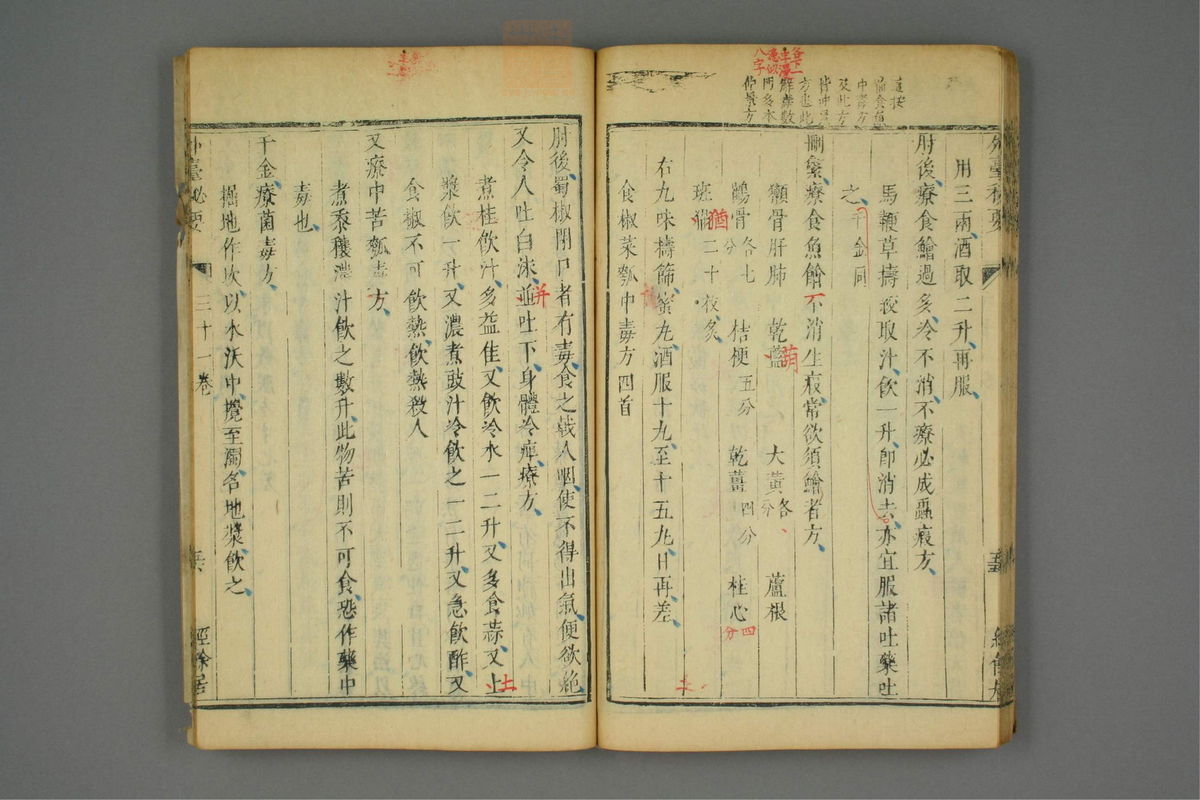 外臺秘要
用三兩酒取二升再服
肘後療食鱠過多冷不消不療必成蟲瘕方
馬鞭草擣絞取汁飲一升即消去亦宜服諸吐藥吐
之千金同
刪繁療食魚鱠不消生瘕常欲須鱠者方
獺骨肝肺 乾藍 大黃各分 蘆根
鶴骨各七分 桔梗五分 乾薑四分 桂心
斑猫二十枚炙
右九味擣篩蜜丸酒服十丸至十五丸日再差
食椒菜瓠中毒方四首
八字
中毒方
及此方
四分
猶
葫
肘後蜀椒閉口者有毒食之戟人咽使不得出氣便欲絶
又令人吐白沫並吐下身體冷痺療方
煮桂飲汁多益佳又飲冷水一二升又多食蒜又土
漿飲一升又濃煮豉汁冷飲之一二升又急飲酢又
食椒不可飲熱飲熱殺人
又療中苦瓠毒方
煮黍穰濃汁飲之數升此物苦則不可食恐作藥中
毒也
千金療菌毒方
掘地作坎以水沃中攪至濁名地漿飲之
并
土
外臺秘要 三十一卷 經餘居